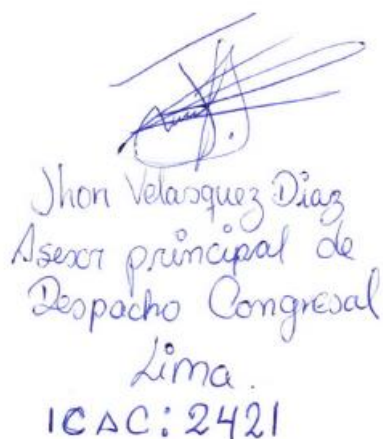 Jhon Velasquez Diaz
Asesor principal de
Despacho Congresal
Lima.
ICAC: 2421